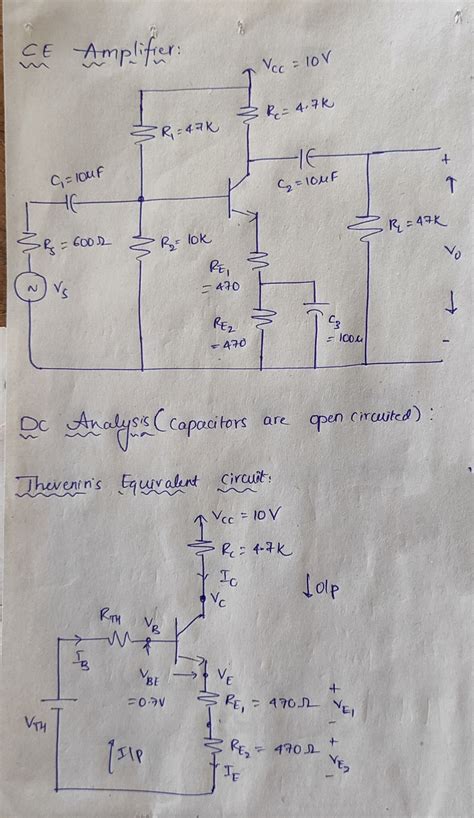 CE Amplifier:
VCC = 10V
RC = 4.7K
R1 = 47K
C1 = 10µF
C2 = 10µF
RS = 600Ω
R2 = 10K
RL = 47K
VS
RE1 = 470
RE2 = 470
C3 = 100µ
+
Vo
-
DC Analysis (capacitors are open circuited):
Thevenin's Equivalent circuit:
VCC = 10V
RC = 4.7K
IC
VC
↓O/p
RTH
VB
IB
VBE = 0.7V
VE
VTH
RE1 = 470Ω
+
VE1
-
I/p
RE2 = 470Ω
+
VE2
-
IE